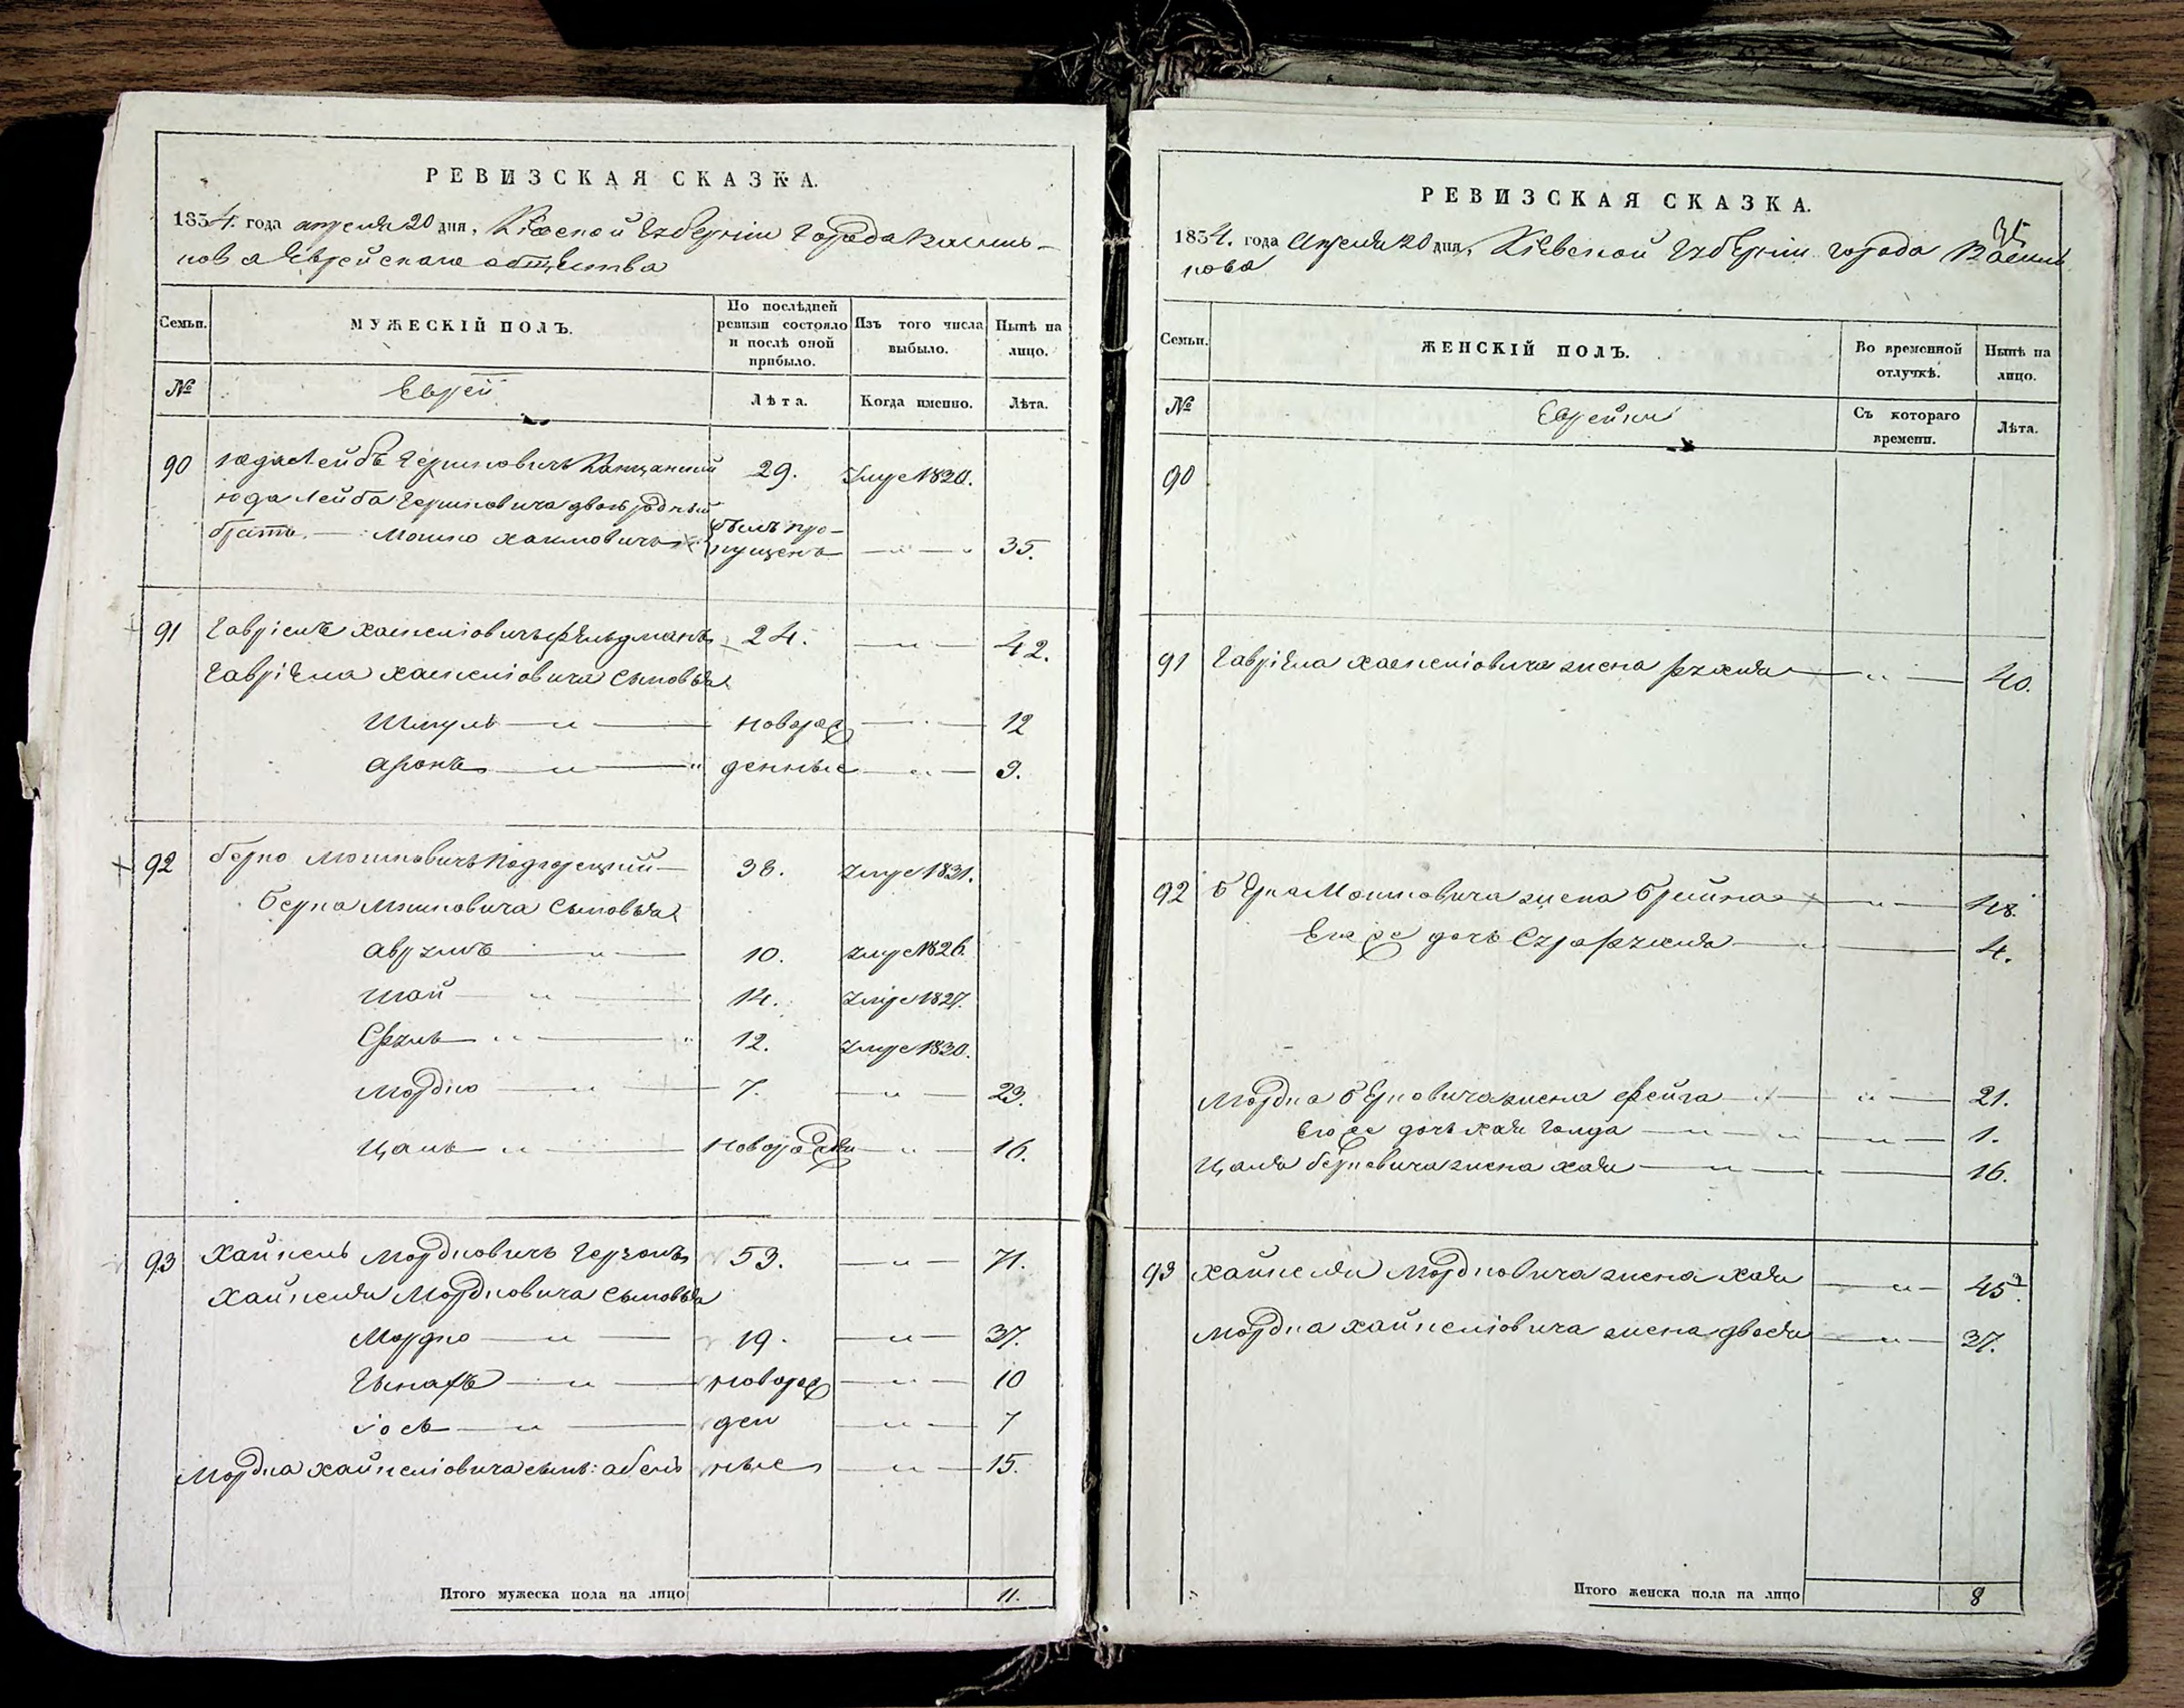 РЕВИЗСКАЯ СКАЗКА.
1834. года апреля 20 дня, Кіевской Губерніи города Василь-
кова Еврейскаго общества
Семьи.
МУЖЕСКІЙ ПОЛЪ.
По послѣдней ревизіи состояло и послѣ оной прибыло.
Изъ того числа выбыло.
Нынѣ на лицо.
№
Еврей
Лѣта.
Когда именно.
Лѣта.
90 Юда Лейбъ Гершковичъ 29. Умре 1820.
Юда Лейба Гершковича двоюродный
братъ — Мошко Хаимовичъ былъ про-
пущенъ — „ — 35.
91 Гавріель Хаскеліовичъ Фельдманъ 24. — „ — 42.
Гавріела Хаскеліовича сыновья
Шмуль — „ — новорож — „ — 12
Аронъ — „ — „ денные — „ — 9.
92 Берко Мошковичъ Подгорецкий — 38. Умре 1831.
Берка Мошковича сыновья
Аврумъ — „ — 10. Умре 1826.
Шай — „ — 14. Умре 1827.
Сруль — „ — „ 12. Умре 1830.
Мордко — „ — 7. — „ — 23.
Цаль — „ — новорожден — „ — 16.
93 Хайкель Мордковичъ Герзонъ 53. — „ — 71.
Хайкеля Мордковича сыновья
Мордко — „ — 19. — „ — 37.
— „ — новорож — „ — 10
Іось — „ — ден — „ — 7
Мордка Хайкеліовича сынъ: Абель ные — „ — 15.
Итого мужеска пола на лицо 11.
РЕВИЗСКАЯ СКАЗКА.
1834. года Апреля 20 дня, Кіевской Губерніи города Василь
кова
Семьи.
ЖЕНСКІЙ ПОЛЪ.
Во временной отлучкѣ.
Нынѣ на лицо.
№
Еврейки
Съ котораго времени.
Лѣта.
90
91 Гавріела Хаскеліовича жена Рухля — „ — 40.
92 Берка Мошковича жена Брейна — „ — 48.
Его же дочь Сура Рухля — „ — 4.
Мордка Берковича жена Фейга — „ — 21.
Его же дочь Хая Голда — „ — „ — „ — 1.
Цаля Берковича жена Хая — „ — „ — 16.
93 Хайкеля Мордковича жена Хая — „ — 45.
Мордка Хайкеліовича жена Двося — „ — 37.
Итого женска пола на лицо 8